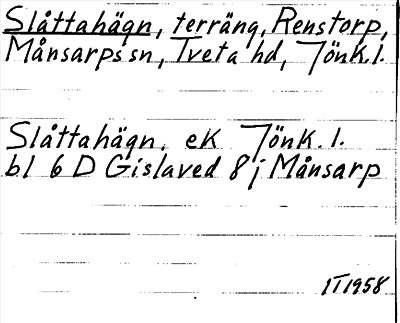 Slåttahägn, terräng, Renstorp,
Månsarps sn, Tveta hd, Jönk.l.
Slåttahägn. ek Jönk.l.
bl 6 D Gislaved 8 j Månsarp
1T1958